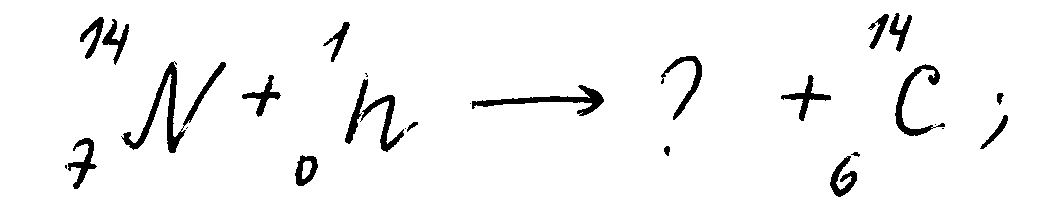 ¹⁴₇N + ¹₀n → ? + ¹⁴₆C ;